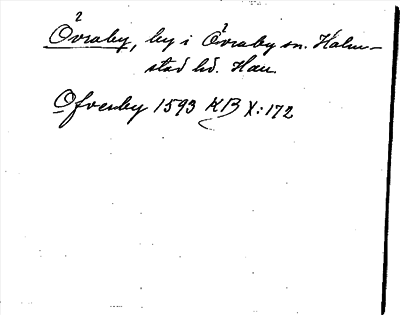 Övraby, by i Övraby sn. Halm-
stad hd. Hau.
Ofvenby 1593 KB X:172